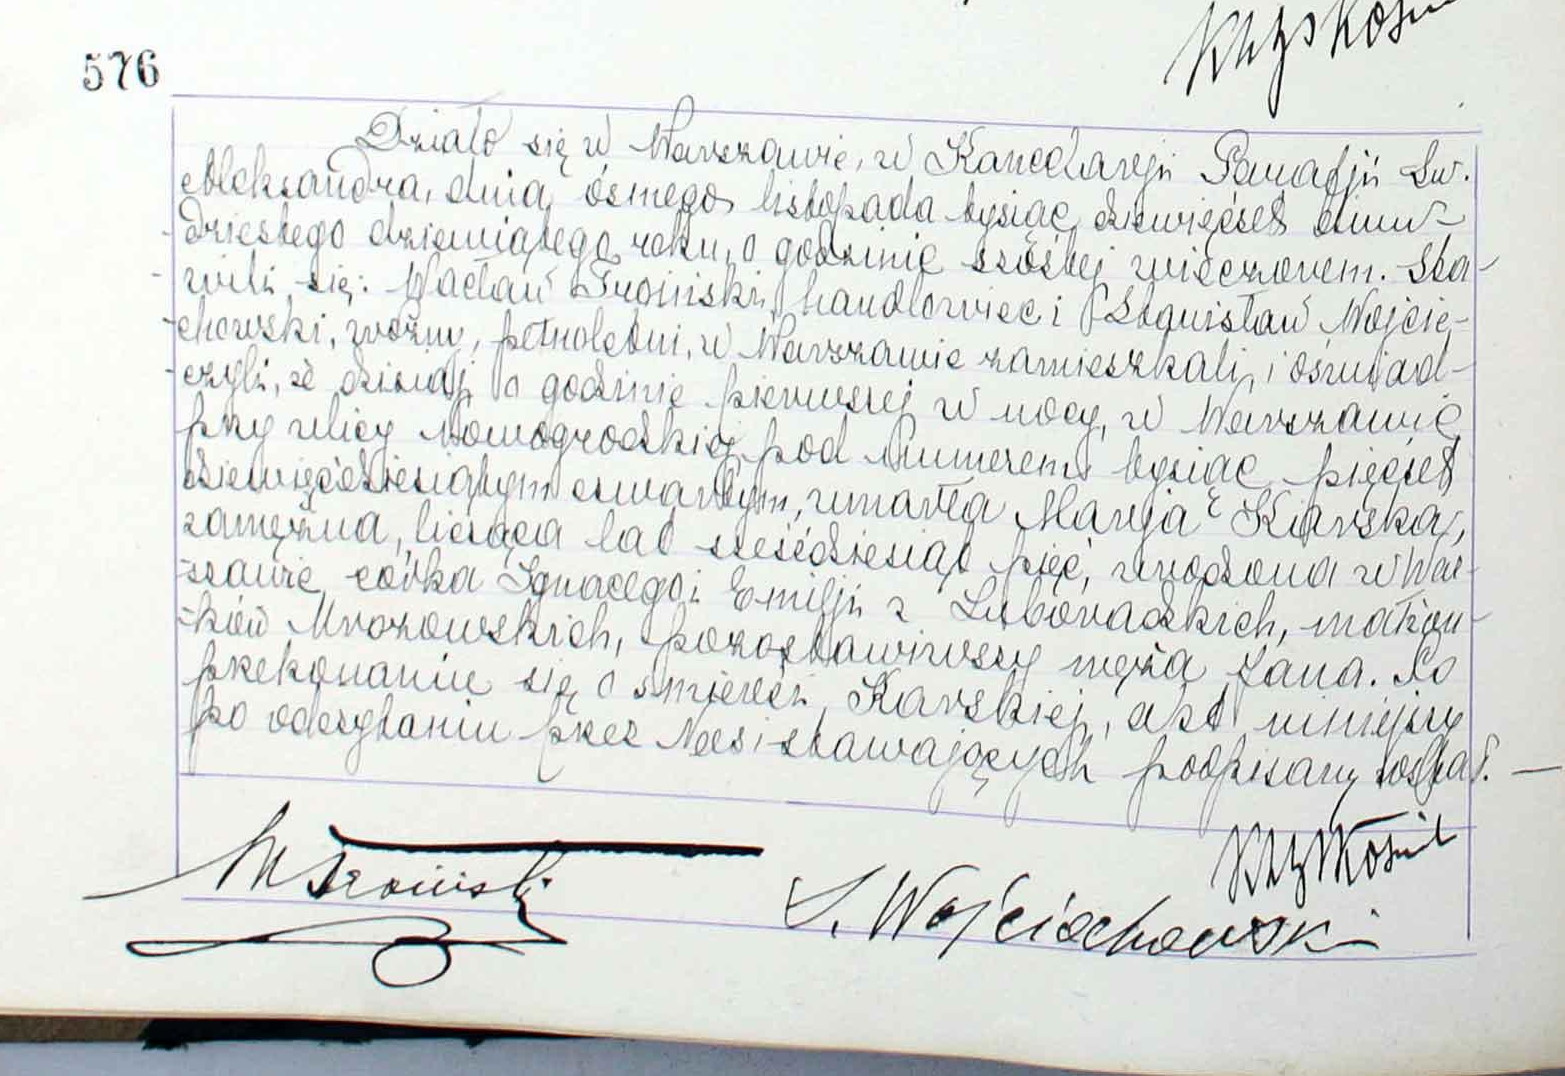 576
Działo się w Warszawie, w Kancelaryji Parafji Św.
Aleksandra, dnia ósmego listopada tysiąc dziewięćset dwu-
dziestego dziewiątego roku, o godzinie szóstej wieczorem. Sta-
wili się: Wacław handlowiec i Stanisław Wojcie-
chowski, woźny, pełnoletni, w Warszawie zamieszkali, i oświad-
czyli, że dzisiaj o godzinie pierwszej w nocy, w Warszawie
przy ulicy Nowogrodzkiej pod numerem tysiąc pięćset
dziewięćdziesiątym czwartym, umarła Marja Karska,
zamężna, licząca lat sześćdziesiąt pięć, urodzona w War-
szawie, córka Ignacego i Emilji z Luboradzkich, małżon-
ków Mrozowskich, pozostawiwszy męża Jana. Po
przekonaniu się o śmierci Karskiej, akt niniejszy
po odczytaniu przez Nas i stawających podpisany został. —
S. Wojciechowski